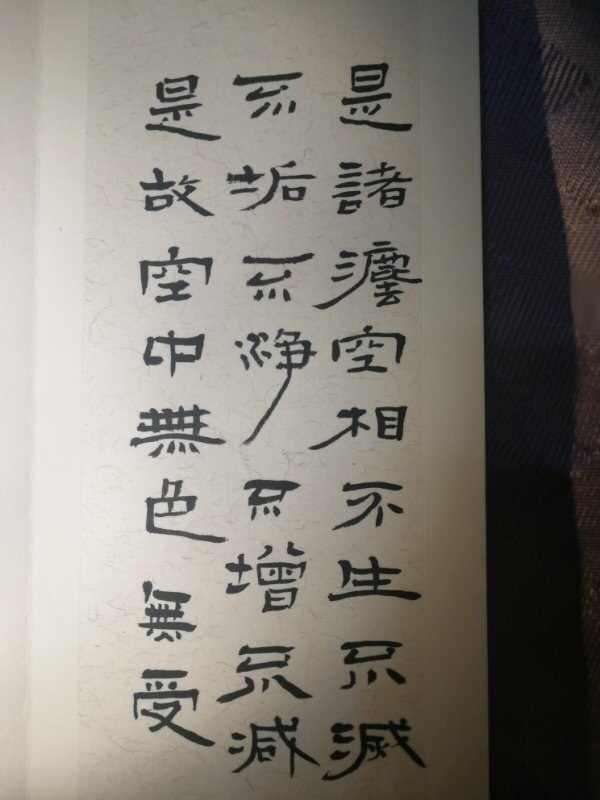 是諸灋空相不生不滅
不垢不淨不增不減
是故空中無色無受